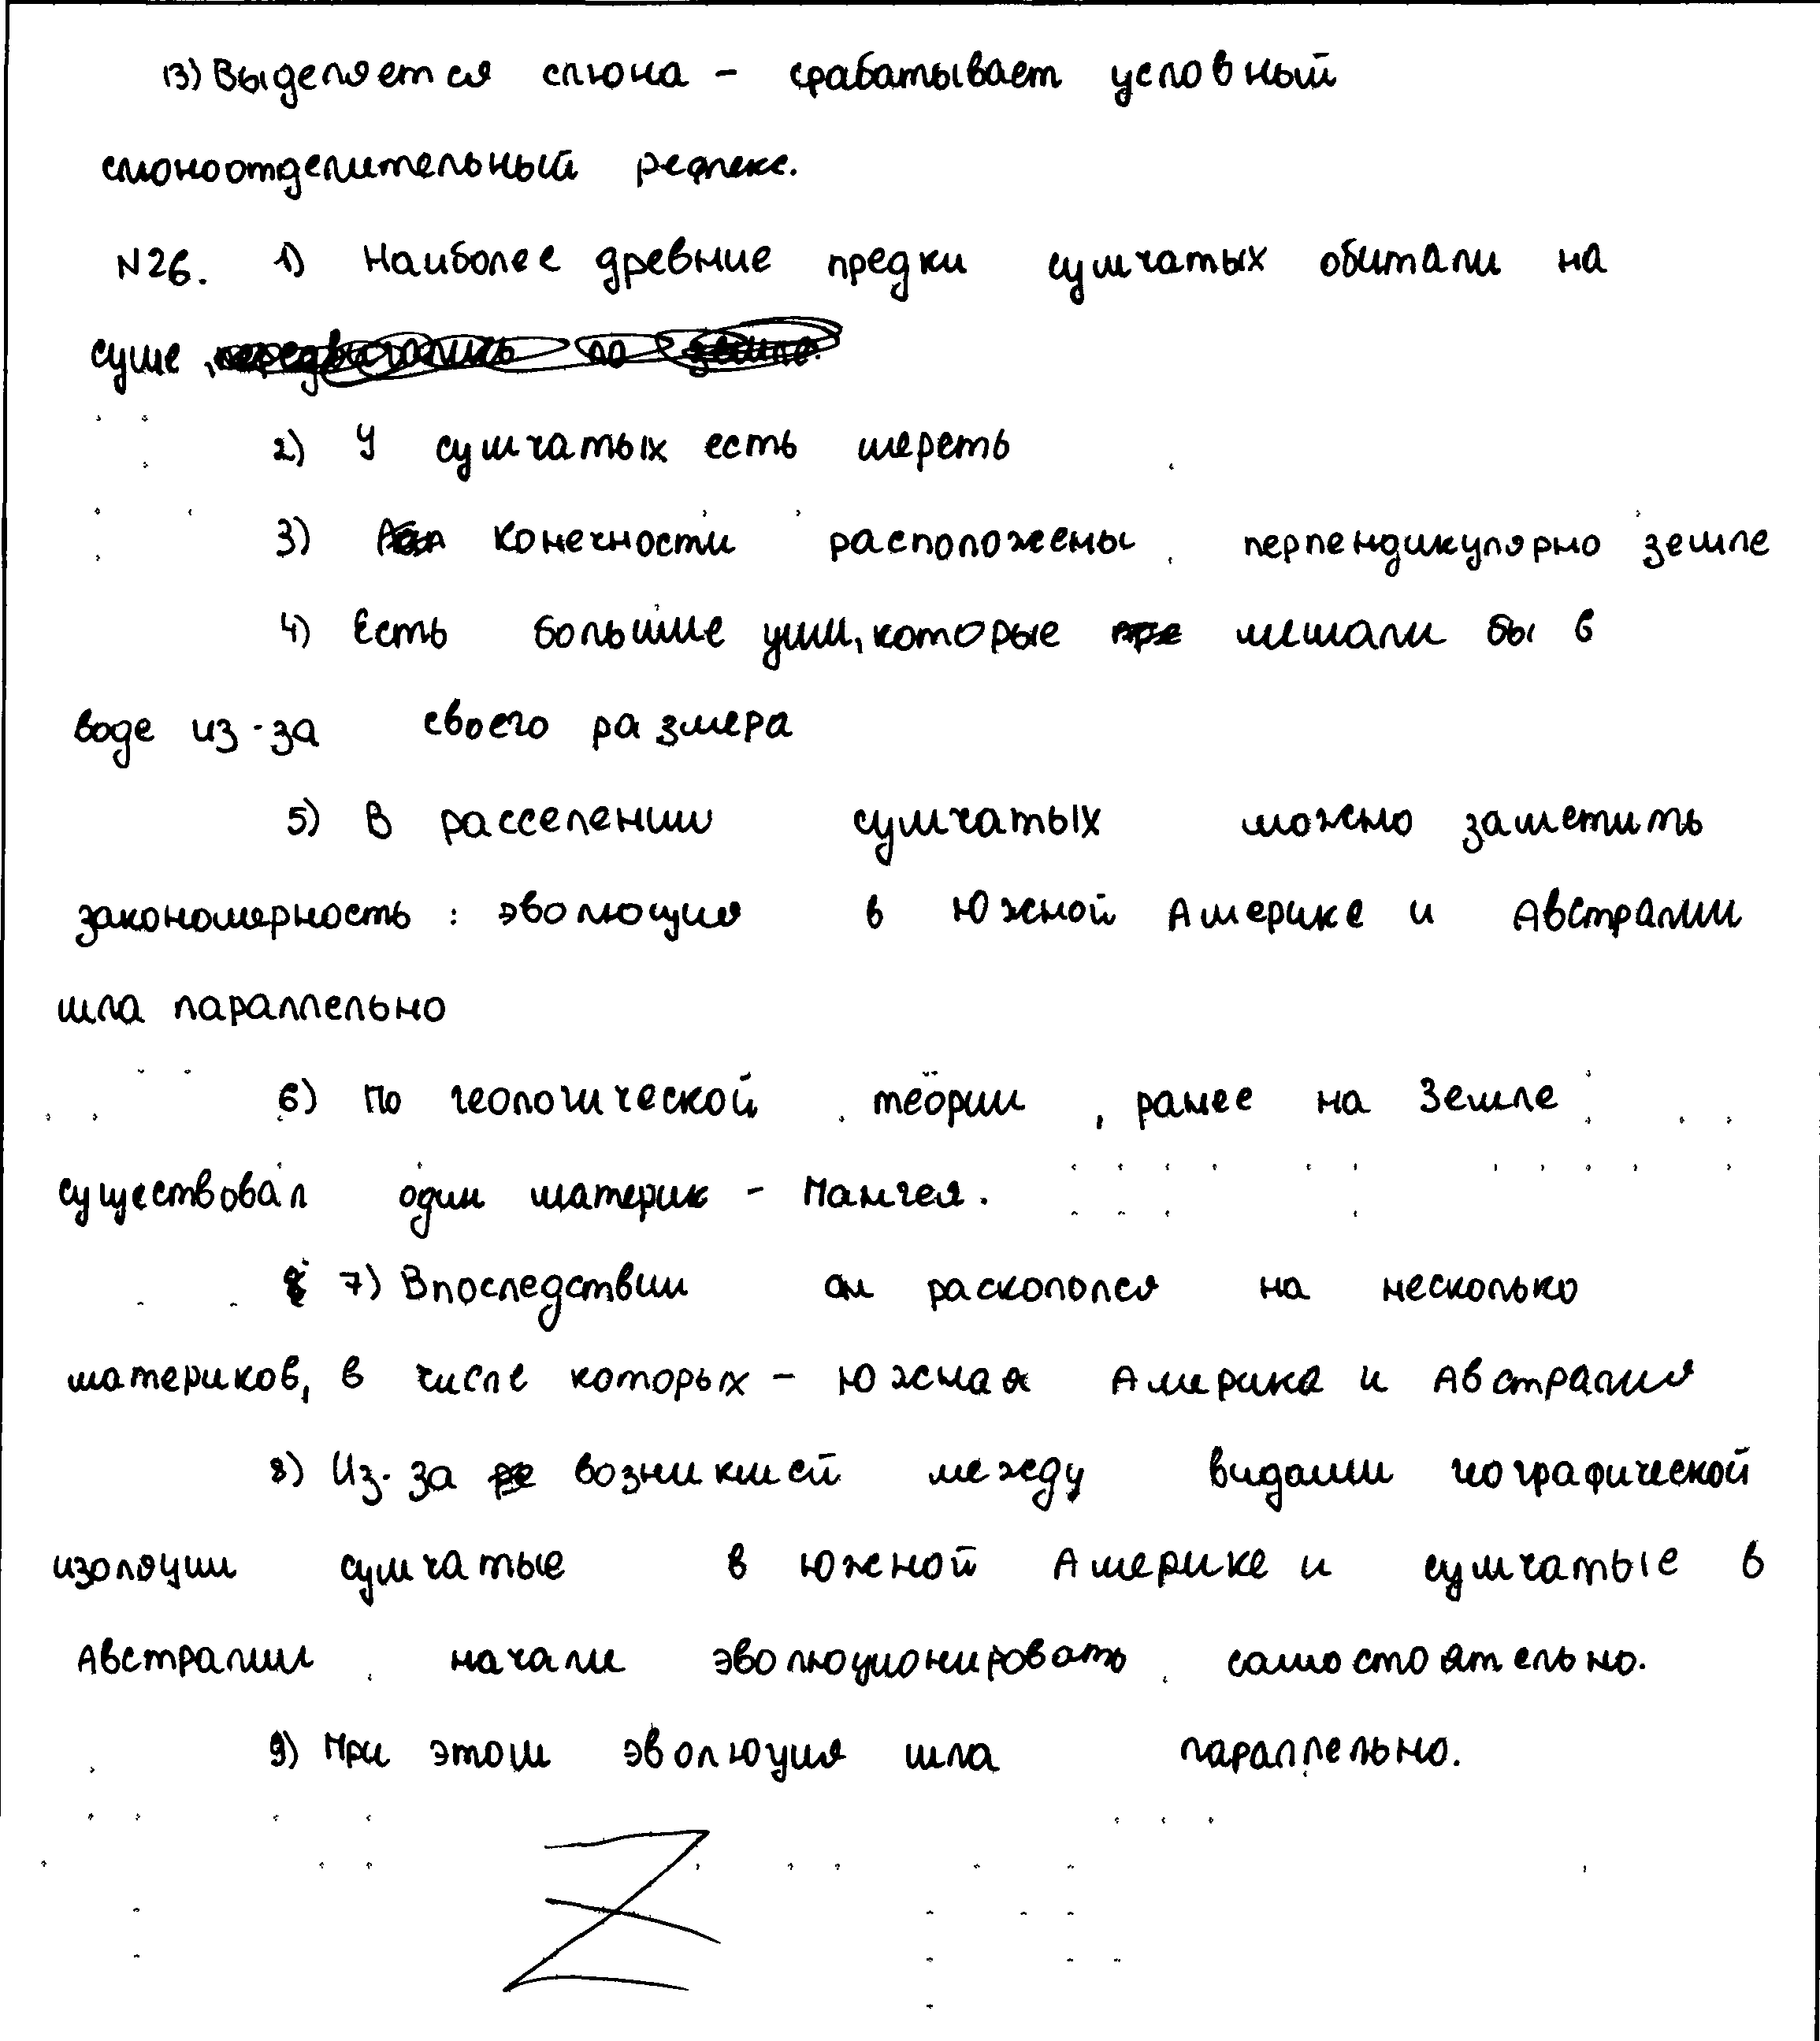 13) Выделяется слюна - срабатывает условный
слюноотделительный рефлекс.
N26. 1) Наиболее древние предки сумчатых обитали на
суше
2) У сумчатых есть шерсть
3) Конечности расположены перпендикулярно земле
4) Есть большие уши, которые мешали бы в
воде из-за своего размера
5) В расселении сумчатых можно заметить
закономерность: эволюция в Южной Америке и Австралии
шла параллельно
6) По геологической теории, ранее на Земле
существовал один материк - Пангея.
7) Впоследствии он раскололся на несколько
материков, в числе которых - Южная Америка и Австралия
8) Из-за возникшей между видами географической
изоляции сумчатые в Южной Америке и сумчатые в
Австралии начали эволюционировать самостоятельно.
9) При этом эволюция шла параллельно.